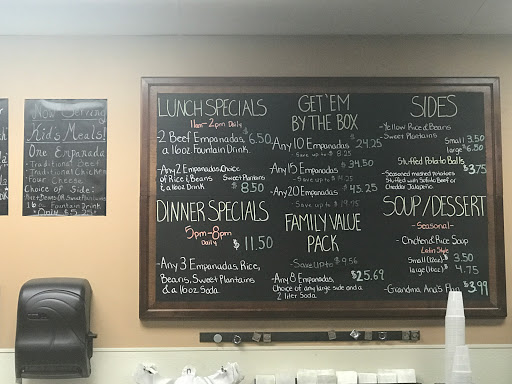 Now Serving
Kid's Meals!
One Empanada
-Traditional Beef
-Traditional Chicken
-Four Cheese
Choice of Side:
16oz Fountain Drink
Only $5.25
LUNCH SPECIALS
11am-2pm Daily
-2 Beef Empanadas, $6.50
a 16oz Fountain Drink.
-Any 2 Empanadas, Choice
of Rice & Beans Sweet Plantains
& a 16oz Drink $8.50
DINNER SPECIALS
5pm-8pm
Daily $11.50
-Any 3 Empanadas, Rice,
Beans, Sweet Plantains
& a 16oz Soda
GET 'EM
BY THE BOX
-Any 10 Empanadas $24.25
Save up to $8.25
-Any 15 Empanadas $34.50
-Save up to
-Any 20 Empanadas $45.25
Save up to
FAMILY VALUE
PACK
-Save Up to $9.56
-Any 8 Empanadas, $25.69
Choice of any large side and a
2 liter Soda
SIDES
-Yellow Rice & Beans
-Sweet Plantains
Small $3.50
large $6.50
Stuffed Potato Balls
-Seasoned mashed potatoes $3.75
Stuffed with Sofrito Beef or
Cheddar Jalapeño
SOUP/DESSERT
-Seasonal-
-Chicken & Rice Soup
Latin Style
Small (12oz) $3.50
large (16oz) $4.75
-Grandma Ana's Flan $3.99